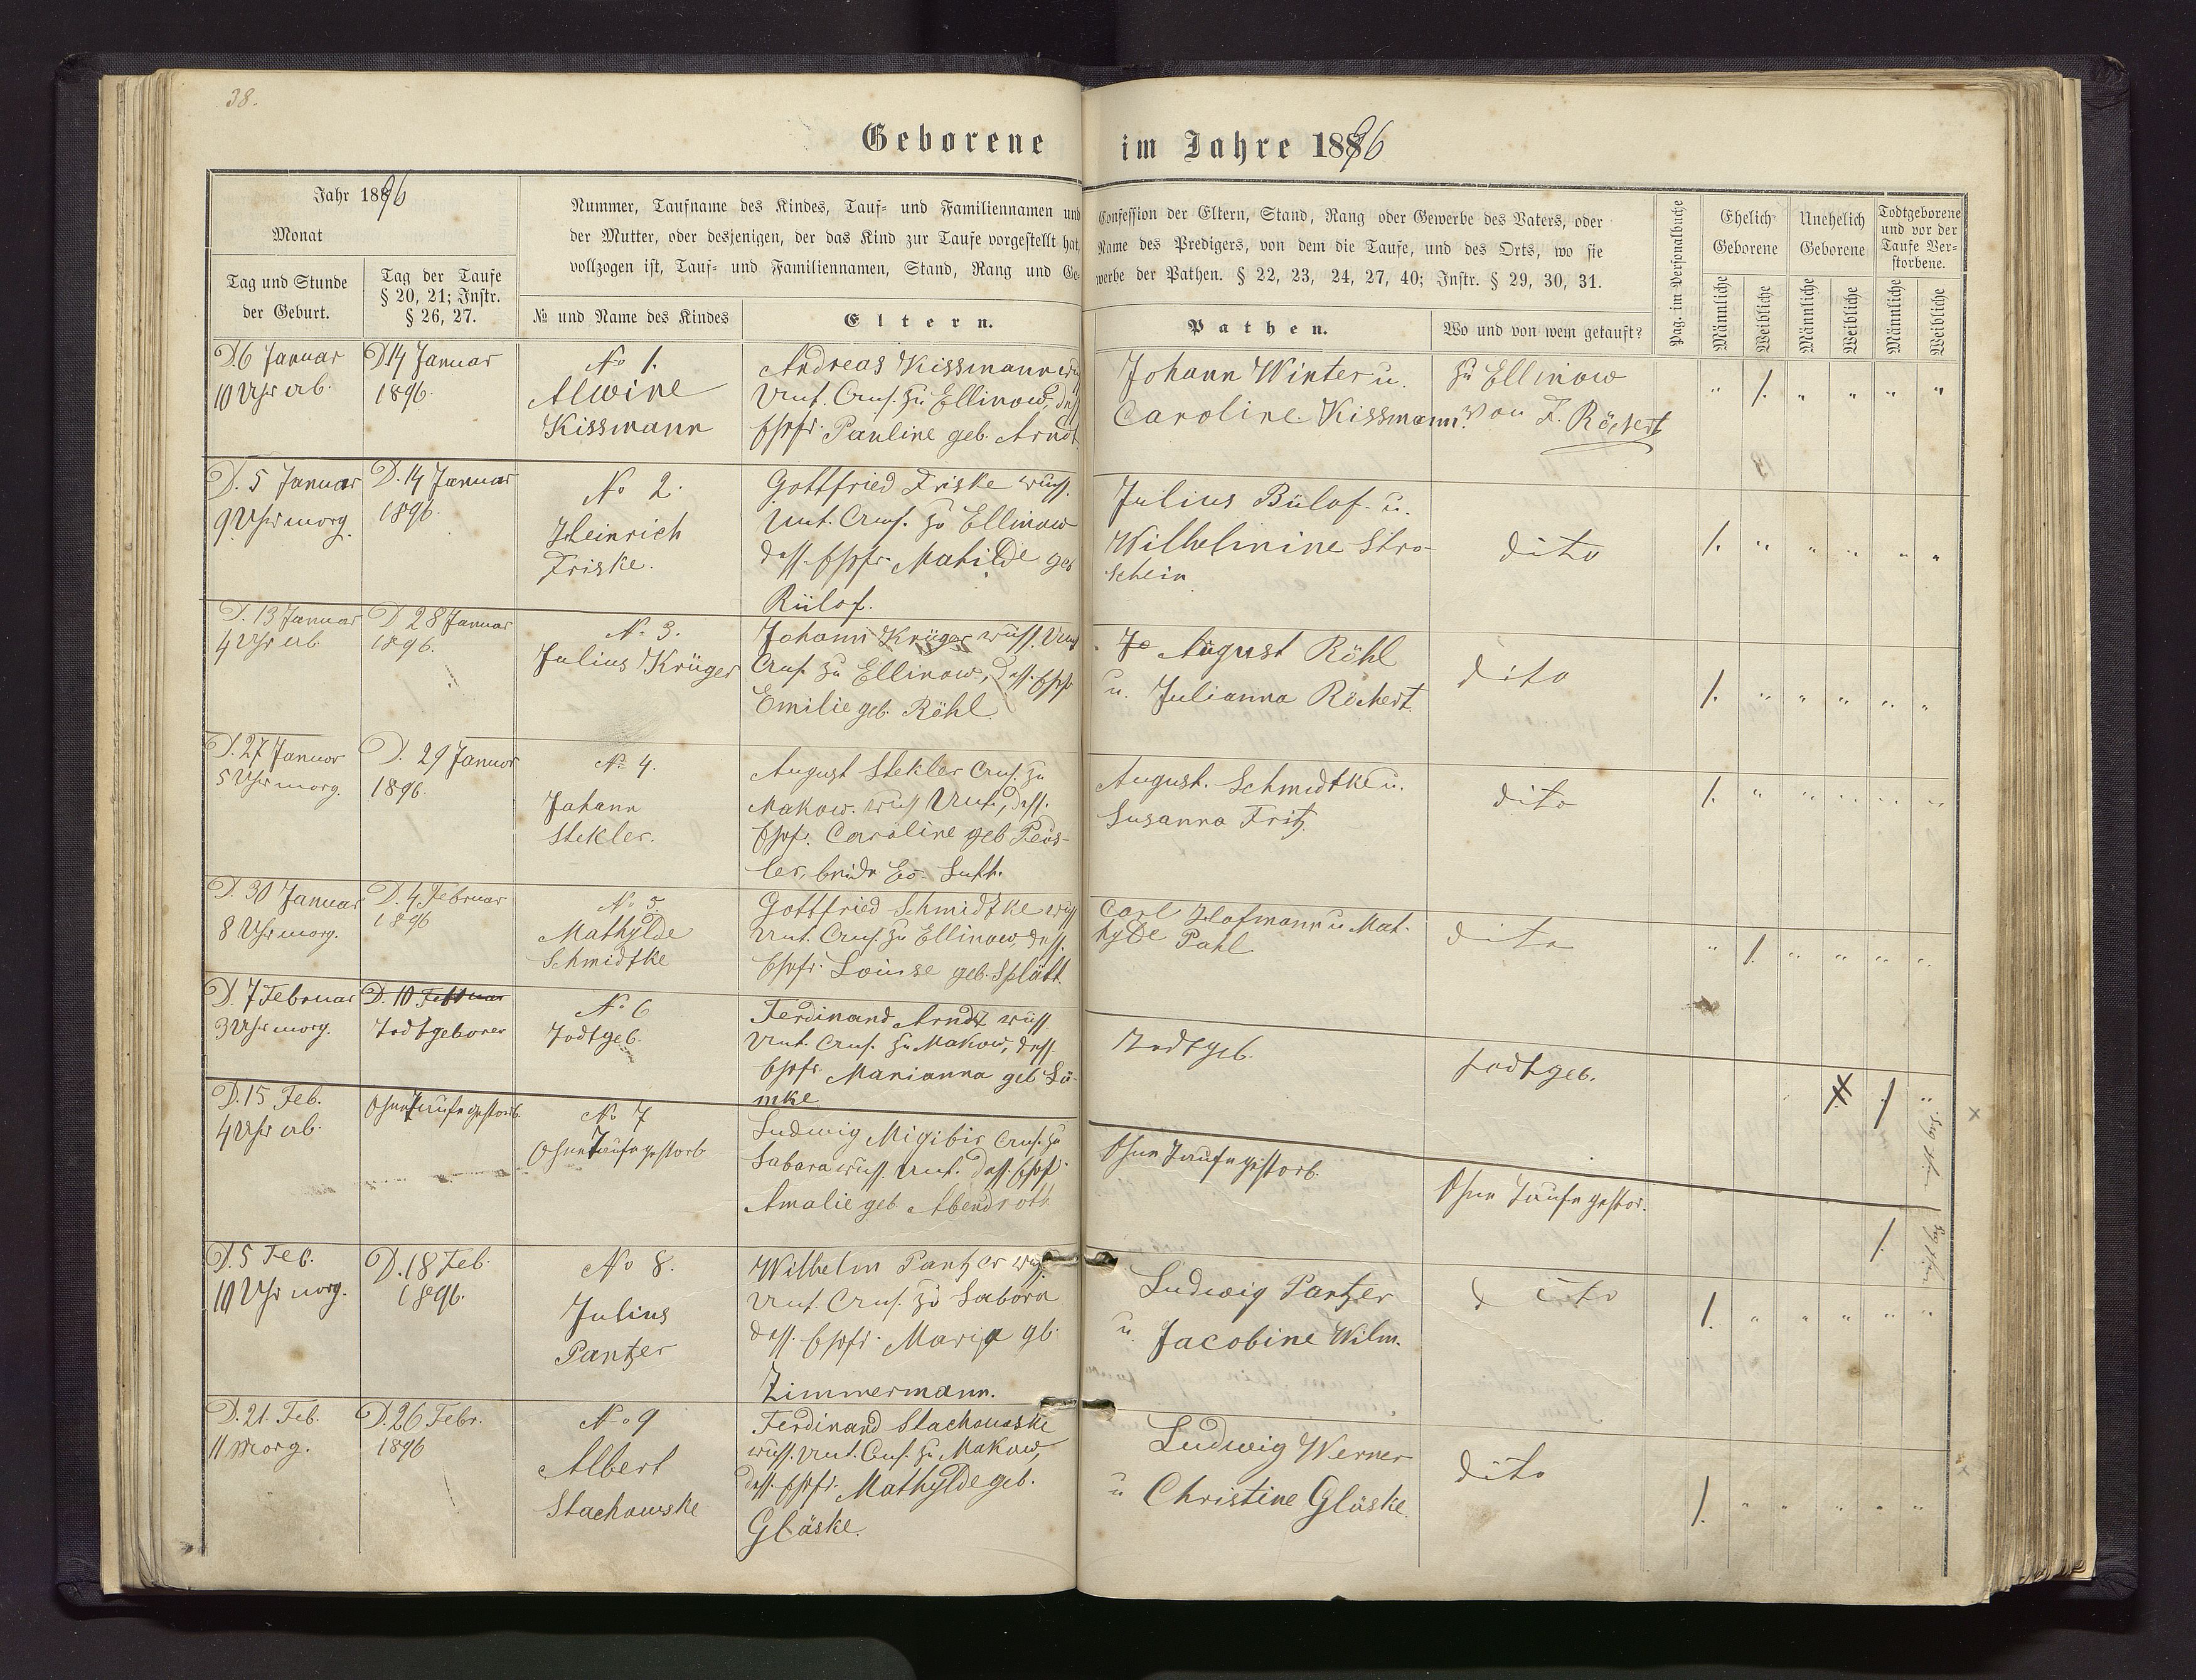 38.
Geborene im Jahre 1896
Jahr 1896
Monat
Tag und Stunde
der Geburt.
Tag der Taufe
§ 20, 21; Instr.
§ 26, 27.
Nummer, Taufname des Kindes, Tauf- und Familiennamen und
der Mutter, oder desjenigen, der das Kind zur Taufe vorgestellt hat,
vollzogen ist, Tauf- und Familiennamen, Stand, Rang und Ge-
№ und Name des Kindes
Eltern.
Confession der Eltern, Stand, Rang oder Gewerbe des Vaters, oder
Name des Predigers, von dem die Taufe, und des Orts, wo sie
werbe der Pathen. § 22, 23, 24, 27, 40; Instr. § 29, 30, 31.
Pathen.
Wo und von wem getauft?
Pag. im Personalbuche
Ehelich
Geborene
Unehelich
Geborene
Todtgeborene
und vor der
Taufe Ver-
storbene.
Männliche
Weibliche
Männliche
Weibliche
Männliche
Weibliche
D. 6 Januar
10 Uhr ab.
D. 14 Januar
1896.
No 1.
Alwine
Kissmann
Andreas Kissmann
zu Ellinow,
Pauline geb. Arndt
Johann Winter u.
Caroline Kissmann.
zu Ellinow
von F. Röchert
" 1. " " " "
D. 5 Januar
9 Uhr morg.
D. 14 Januar
1896.
No 2.
Heinrich
Friske.
Gottfried Friske
zu Ellinow
Mathilde geb
Bülof.
Julius Bülof. u.
Wilhelmine Stro-
schein
dito
1. " " " " "
D. 13 Januar
4 Uhr ab.
D. 28 Januar
1896.
No 3.
Julius Krüger
Johann Krüger
zu Ellinow,
Emilie geb. Röhl.
August Röhl
u. Julianna Röchert.
dito
1. " " " " "
D. 27 Januar
5 Uhr morg.
D. 29 Januar
1896.
No 4.
Johann
Stekler.
August Stekler zu
Makow.
Caroline geb
August. Schmidtke u.
Susanna Fritz
dito
1. " " " " "
D. 30 Januar
8 Uhr morg.
D. 4. Februar
1896
No 5
Mathylde
Schmidtke
Gottfried Schmidtke
zu Ellinow,
Louise geb. Splätt
Carl Hofmann u Mat-
hylde Pahl.
dito
" 1. " " " "
D. 7 Februar
3 Uhr morg.
D. 10 Februar
Todtgeboren
No 6
Todtgeb.
Ferdinand Arndt
zu Makow,
Marianna geb Lü-
mke
Todtgeb.
todtgeb.
1 "
D. 15 Feb.
4 Uhr ab.
Ohne Taufe gestorb.
No 7
Ohne Taufe gestorb
Ludwig Migibir zu
Sabara
Amalie geb. Abendroth
Ohne Taufe gestorb.
Ohne Taufe gestor.
1.
D. 5 Feb.
10 Uhr morg.
D. 18 Feb.
1896.
No 8.
Julius
Pantzer
Wilhelm Pantzer
zu Sabora
Maria gb.
Zimmermann.
Ludwig Pantzer
u. Jacobine Wilm.
dito
1. " " " " "
D. 21. Feb.
11 morg.
D. 26 Febr.
1896
No 9
Albert
Stachowske
Ferdinand Stachowske
zu Makow,
Mathylde geb.
Gläske.
Ludwig Werner
u Christine Gläske.
dito
1. " " " " "